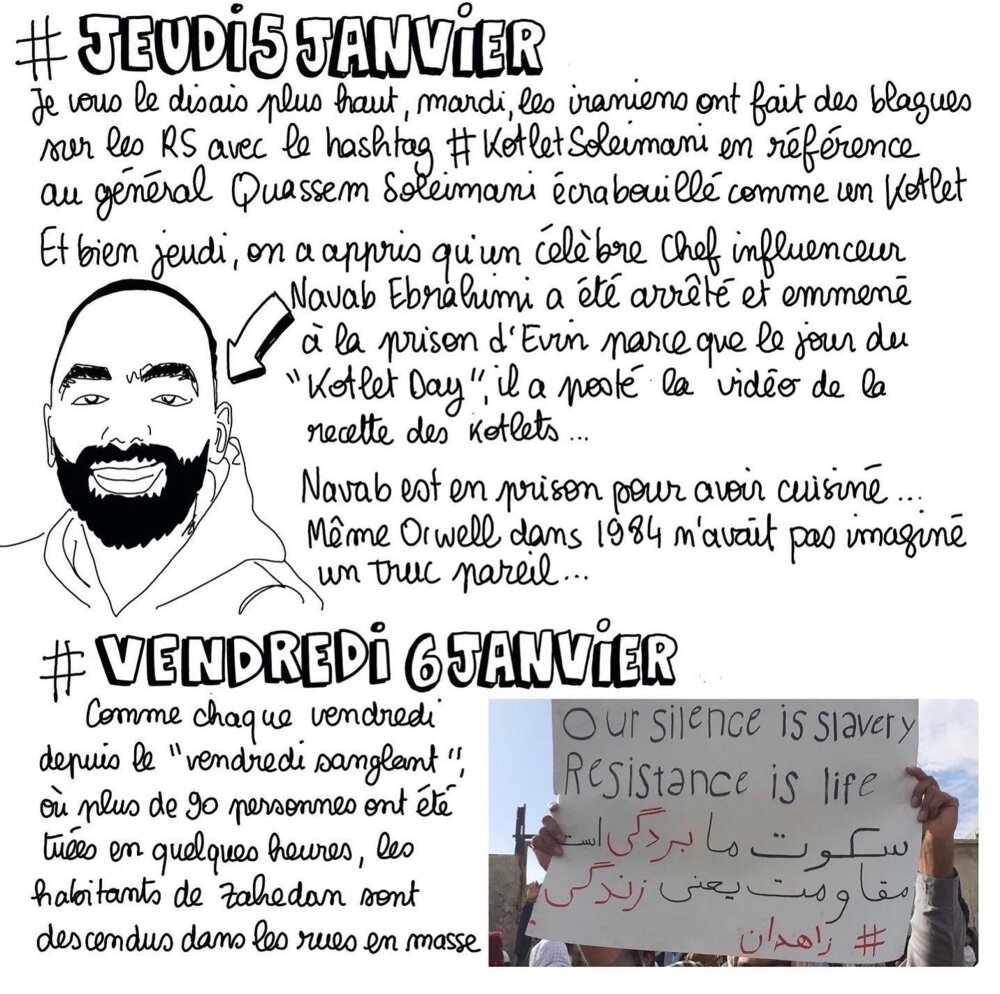 # JEUDI 5 JANVIER
Je vous le disais plus haut, mardi, les iraniens ont fait des blagues
sur les RS avec le hashtag #KotletSoleimani en référence
au général Quassem Soleimani écrabouillé comme un Kotlet
Et bien jeudi, on a appris qu'un célèbre Chef influenceur
Navab Ebrahimi a été arrêté et emmené
à la prison d'Evin parce que le jour du
"Kotlet Day", il a posté la vidéo de la
recette des Kotlets...
Navab est en prison pour avoir cuisiné...
Même Orwell dans 1984 n'avait pas imaginé
un truc pareil...
# VENDREDI 6 JANVIER
Comme chaque vendredi
depuis le "vendredi sanglant",
où plus de 90 personnes ont été
tuées en quelques heures, les
habitants de Zahedan sont
descendus dans les rues en masse
Our silence is slavery
Resistance is life
سکوت ما بردگی است
مقاومت یعنی زندگی
# زاهدان